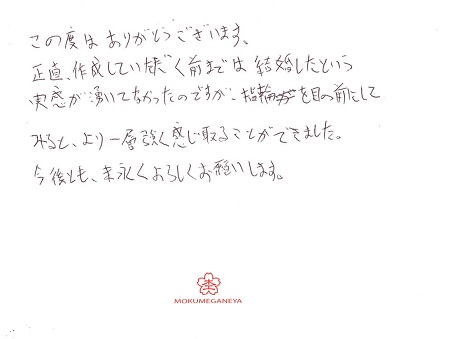 この度はありがとうございます、
正直、作成していただく前までは結婚したという
実感が湧いてなかったのですが、指輪を目の前にして
みると、より一層強く感じ取ることができました。
今後とも、末永くよろしくお願いします。
MOKUMEGANEYA